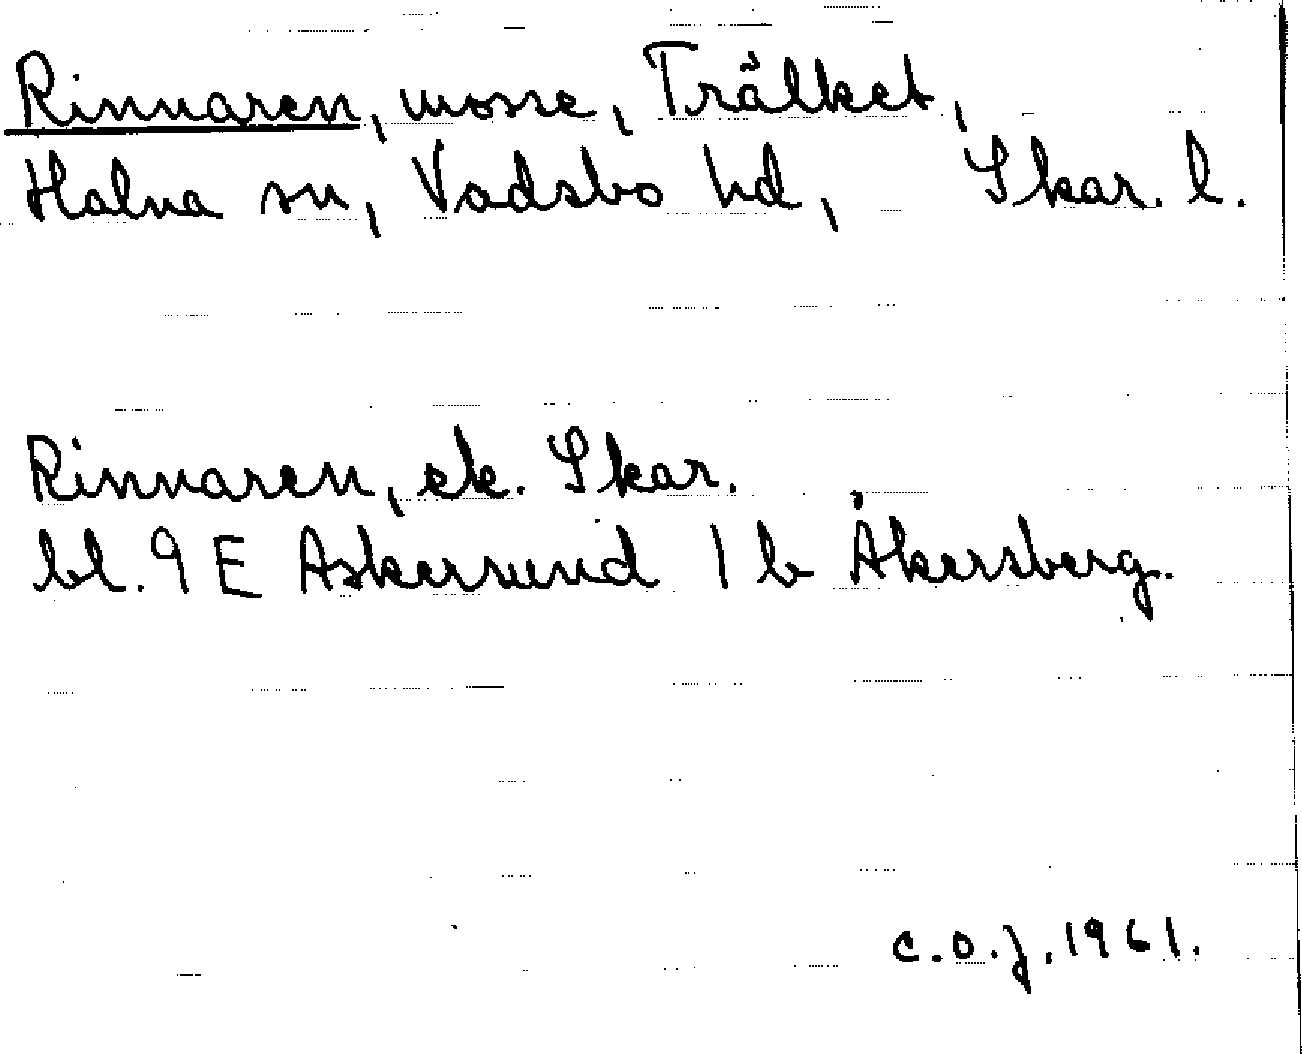 Rinnaren, mosse, Trälket,
Halna sn, Vadsbo hd, Skar. l.
Rinnaren, ek. Skar.
bl. 9 E Askersund 1 b Åkersberg.
C.O.J. 1961.